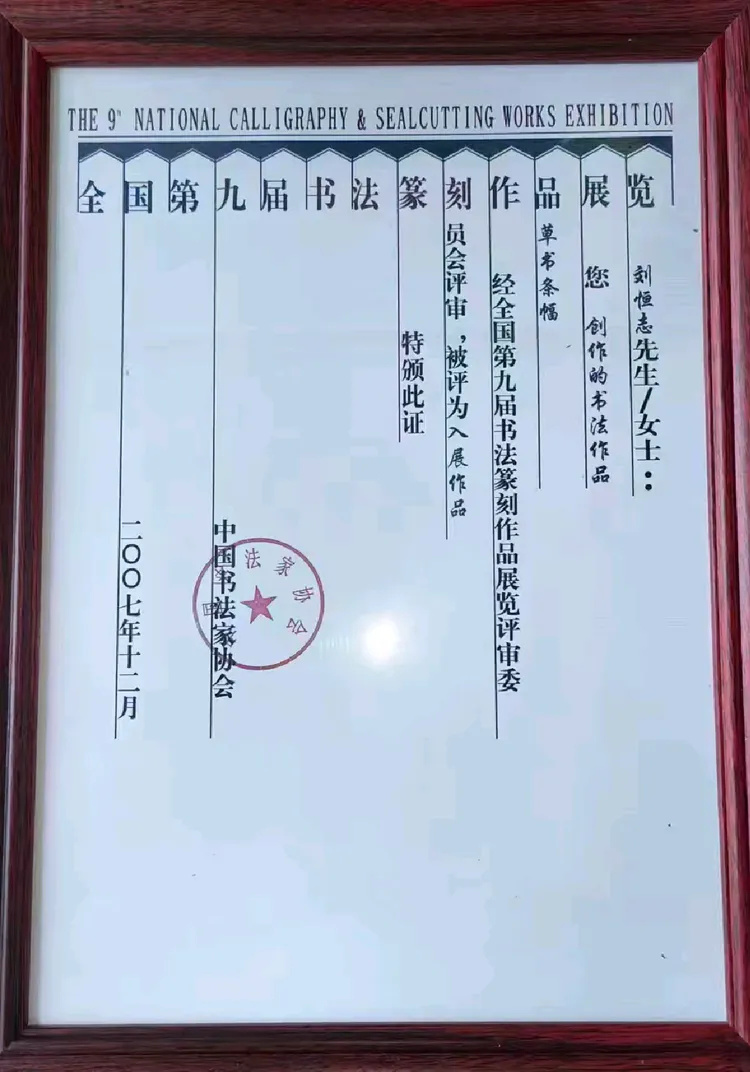 THE 9th NATIONAL CALLIGRAPHY & SEALCUTTING WORKS EXHIBITION
全国第九届书法篆刻作品展览
刘恒志先生/女士：
您 创作的书法作品
草书条幅
经全国第九届书法篆刻作品展览评审委
员会评审，被评为入展作品
特颁此证
中国书法家协会
二〇〇七年十二月
法家协会